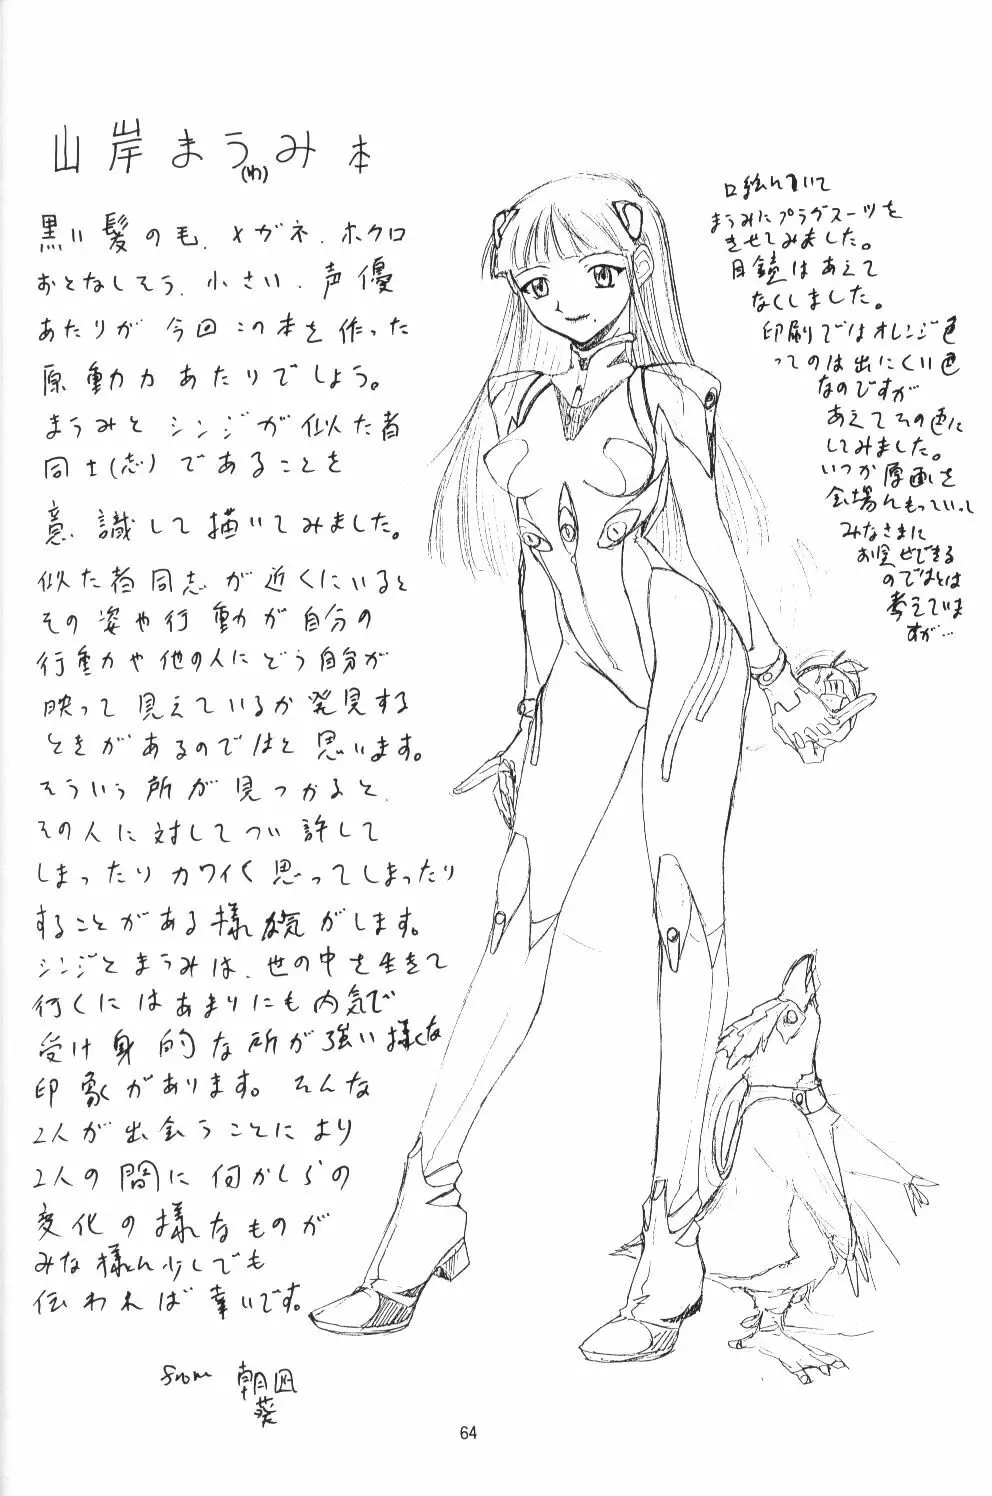 山岸まうみ本
(ゆ)
黒い髪の毛、メガネ、ホクロ
おとなしそう、小さい、声優
あたりが今回この本を作った
原動力あたりでしょう。
まうみとシンジが似た者
同士(志)であることを
意識して描いてみました。
似た者同志が近くにいると
その姿や行動が自分の
行動や他の人にどう自分が
映って見えているか発見する
ときがあるのではと思います。
そういう所が見つかると、
その人に対してつい許して
しまったりカワイく思ってしまったり
することがある様な気がします。
シンジとまうみは、世の中を生きて
行くにはあまりにも内気で
受け身的な所が強い様な
印象があります。そんな
2人が出会うことにより
2人の間に何かしらの
変化の様なものが
みな様に少しでも
伝われば幸いです。
from 朝凪
葵
口絵において
まうみにプラグスーツを
きせてみました。
目鏡はあえて
なくしました。
印刷ではオレンジ色
ってのは出にくい色
なのですが
あえてその色に
してみました。
いつか原画を
会場にもっていって
みなさまに
お見せできる
のではとは
考えていま
すが…
64